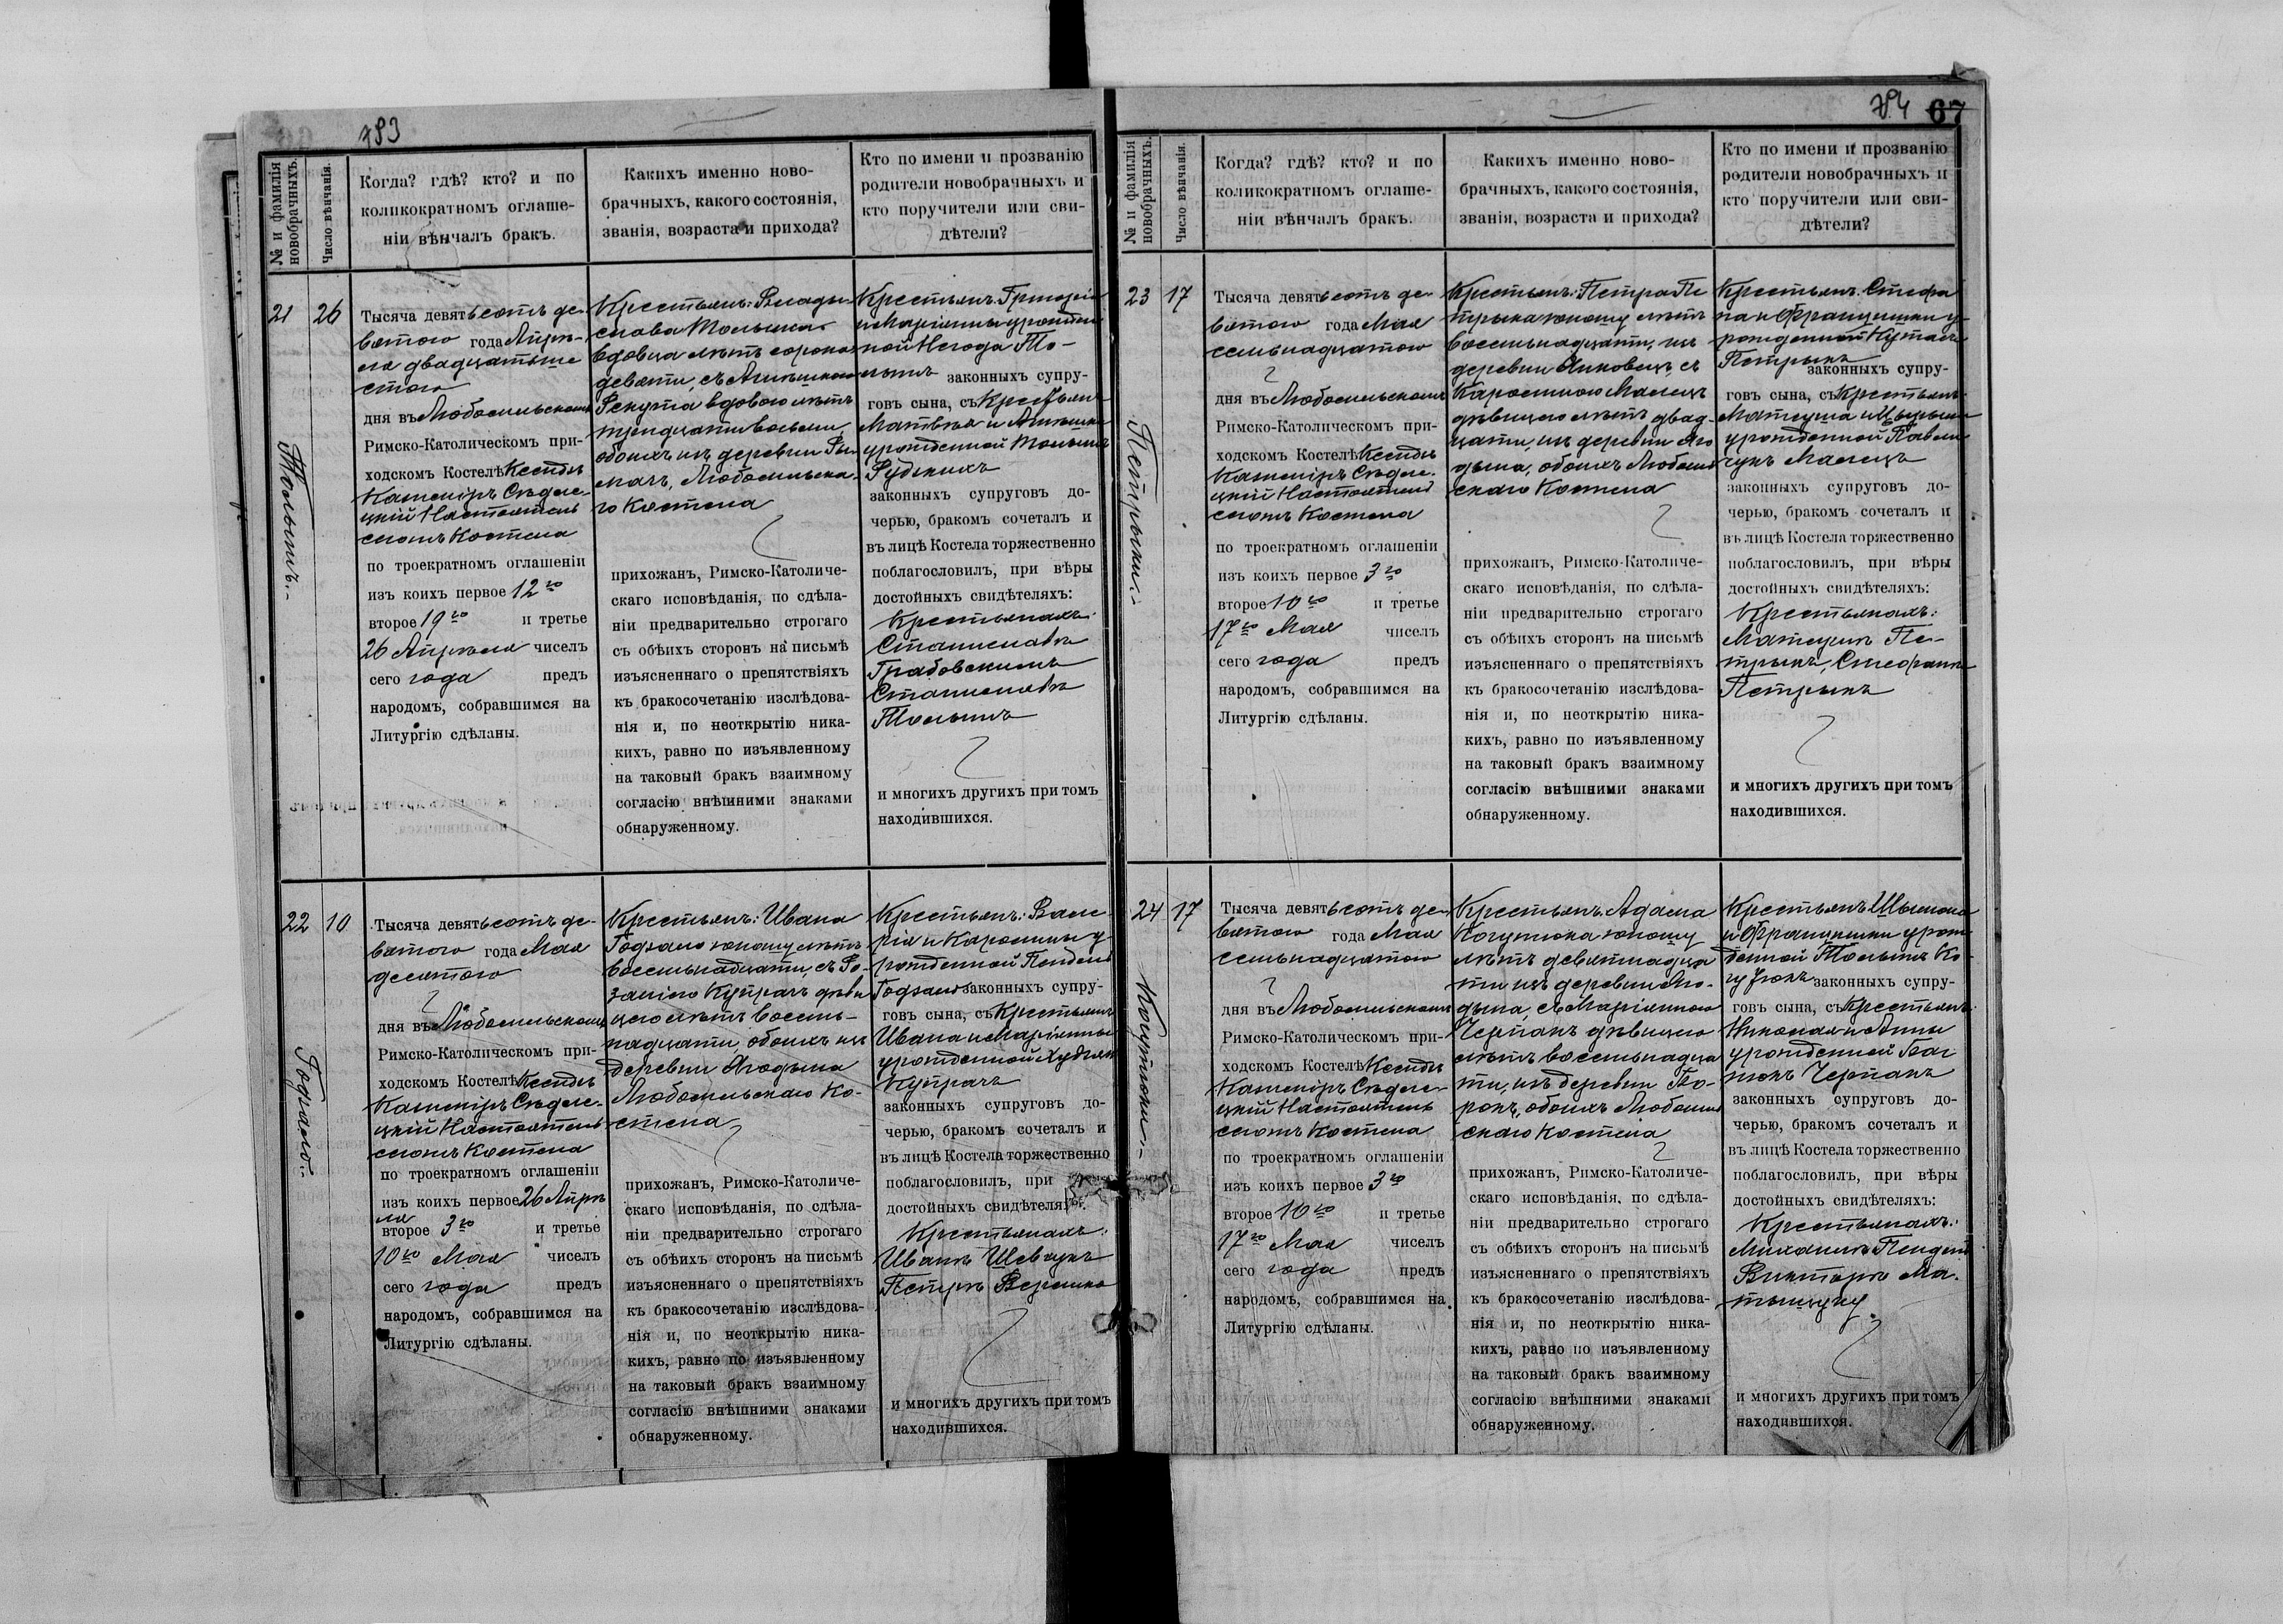 783
№ и фамилія новобрачныхъ.
Число вѣнчанія.
Когда? гдѣ? кто? и по
коликократномъ оглаше-
ніи вѣнчалъ бракъ.
Какихъ именно ново-
брачныхъ, какого состоянія,
званія, возраста и прихода?
Кто по имени и прозванію
родители новобрачныхъ и
кто поручители или сви-
дѣтели?
21
26
Тысяча девятьсотъ де-
вятого года Апрѣ-
ля двадцать ше
стого
дня въ Любомльскомъ
Римско-Католическомъ при-
ходскомъ Костелѣ Ксендзъ
Казиміръ Сѣдле-
цкій Настоятель
сего Костела
по троекратномъ оглашеніи
изъ коихъ первое 12го
второе 19го и третье
26 Апрѣля чиселъ
сего года предъ
народомъ, собравшимся на
Литургію сдѣланы.
Крестьянъ: Влады-
слава
вдовца лѣтъ сорока
девяти, съ
вдовою лѣтъ
тридцати восьми,
обоихъ изъ деревни
го Костела
прихожанъ, Римско-Католиче-
скаго исповѣданія, по сдѣла-
ніи предварительно строгаго
съ обѣихъ сторонъ на письмѣ
изъясненнаго о препятствіяхъ
къ бракосочетанію изслѣдова-
нія и, по неоткрытію ника-
кихъ, равно по изъявленному
на таковый бракъ взаимному
согласію внѣшними знаками
обнаруженному.
Крестьянъ: Григорія
и Маріанны урожден
ной
законныхъ супру-
говъ сына, съ Крестьянъ
Матвѣя и
урожденной
законныхъ супруговъ до-
черью, бракомъ сочеталъ и
въ лицѣ Костела торжественно
поблагословилъ, при вѣры
достойныхъ свидѣтеляхъ:
Крестьянахъ:
Станиславѣ
Грабовскимъ
Станиславѣ
и многихъ другихъ при томъ
находившихся.
22
10
Годзало.
Тысяча девятьсотъ де-
вятого года Мая
десятого
дня въ Любомльскомъ
Римско-Католическомъ при-
ходскомъ Костелѣ Ксендзъ
Казиміръ Сѣдле-
цкій Настоятель
сего Костела
по троекратномъ оглашеніи
изъ коихъ первое 26 Апрѣ
ля
второе 3го и третье
10го Мая чиселъ
сего года предъ
народомъ, собравшимся на
Литургію сдѣланы.
Крестьянъ: Ивана
Годзало юношу лѣтъ
восемьнадцати, съ Ро-
заліею Купрачъ дѣви
цею лѣтъ восемь-
надцати, обоихъ изъ
деревни Ягодына
Любомльскаго Ко-
стела
прихожанъ, Римско-Католиче-
скаго исповѣданія, по сдѣла-
ніи предварительно строгаго
съ обѣихъ сторонъ на письмѣ
изъясненнаго о препятствіяхъ
къ бракосочетанію изслѣдова-
нія и, по неоткрытію ника-
кихъ, равно по изъявленному
на таковый бракъ взаимному
согласію внѣшними знаками
обнаруженному.
Крестьянъ: Вале-
рія и Каролины у
рожденной
Годзало законныхъ супру-
говъ сына, съ Крестьянъ
Ивана и Маріанны
урожденной
Купрачъ
законныхъ супруговъ до-
черью, бракомъ сочеталъ и
въ лицѣ Костела торжественно
поблагословилъ, при
достойныхъ свидѣтеляхъ:
Крестьянахъ:
Иванѣ Шевчукъ
Петрѣ
и многихъ другихъ при томъ
находившихся.
784 67
№ и фамилія новобрачныхъ.
Число вѣнчанія.
Когда? гдѣ? кто? и по
коликократномъ оглаше-
ніи вѣнчалъ бракъ.
Какихъ именно ново-
брачныхъ, какого состоянія,
званія, возраста и прихода?
Кто по имени и прозванію
родители новобрачныхъ и
кто поручители или сви-
дѣтели?
23
17
Петрыки.
Тысяча девятьсотъ де-
вятого года Мая
семьнадцатого
дня въ Любомльскомъ
Римско-Католическомъ при-
ходскомъ Костелѣ Ксендзъ
Казиміръ Сѣдле-
цкій Настоятель
сего Костела
по троекратномъ оглашеніи
изъ коихъ первое 3го
второе 10го и третье
17го Мая чиселъ
сего года предъ
народомъ, собравшимся на
Литургію сдѣланы.
Крестьянъ: Петра Пе
трыка юношу лѣтъ
восемьнадцати, изъ
деревни съ
Каролиною Малецъ
дѣвицею лѣтъ двад-
цати, изъ деревни Яго
дына, обоихъ Любомль
скаго Костела
прихожанъ, Римско-Католиче-
скаго исповѣданія, по сдѣла-
ніи предварительно строгаго
съ обѣихъ сторонъ на письмѣ
изъясненнаго о препятствіяхъ
къ бракосочетанію изслѣдова-
нія и, по неоткрытію ника-
кихъ, равно по изъявленному
на таковый бракъ взаимному
согласію внѣшними знаками
обнаруженному.
Крестьянъ: Стефа
на и Францишки у-
рожденной
Петрыкъ
законныхъ супру-
говъ сына, съ Крестьянъ
Матеуша и
урожденной
Малецъ
законныхъ супруговъ до-
черью, бракомъ сочеталъ и
въ лицѣ Костела торжественно
поблагословилъ, при вѣры
достойныхъ свидѣтеляхъ:
Крестьянахъ:
Матеушѣ Пе-
трыкъ, Стефанѣ
Петрыкъ
и многихъ другихъ при томъ
находившихся.
24
17
Тысяча девятьсотъ де-
вятого года Мая
семьнадцатого
дня въ Любомльскомъ
Римско-Католическомъ при-
ходскомъ Костелѣ Ксендзъ
Казиміръ Сѣдле-
цкій Настоятель
сего Костела
по троекратномъ оглашеніи
изъ коихъ первое 3го
второе 10го и третье
17го Мая чиселъ
сего года предъ
народомъ, собравшимся на
Литургію сдѣланы.
Крестьянъ: Адама
юношу
лѣтъ девятнадца
ти изъ деревни Яго-
дына, съ Маріанною
Черпакъ дѣвицею
лѣтъ восемьнадца
ти, изъ деревни
обоихъ Любомль
скаго Костела
прихожанъ, Римско-Католиче-
скаго исповѣданія, по сдѣла-
ніи предварительно строгаго
съ обѣихъ сторонъ на письмѣ
изъясненнаго о препятствіяхъ
къ бракосочетанію изслѣдова-
нія и, по неоткрытію ника-
кихъ, равно по изъявленному
на таковый бракъ взаимному
согласію внѣшними знаками
обнаруженному.
Крестьянъ Шымона
и Францишки урож
денной
законныхъ супру-
говъ сына, съ Крестьянъ
Николая и Анны
урожденной
Черпакъ
законныхъ супруговъ до-
черью, бракомъ сочеталъ и
въ лицѣ Костела торжественно
поблагословилъ, при вѣры
достойныхъ свидѣтеляхъ:
Крестьянахъ:
Михаилѣ
Викторѣ Ма-
и многихъ другихъ при томъ
находившихся.